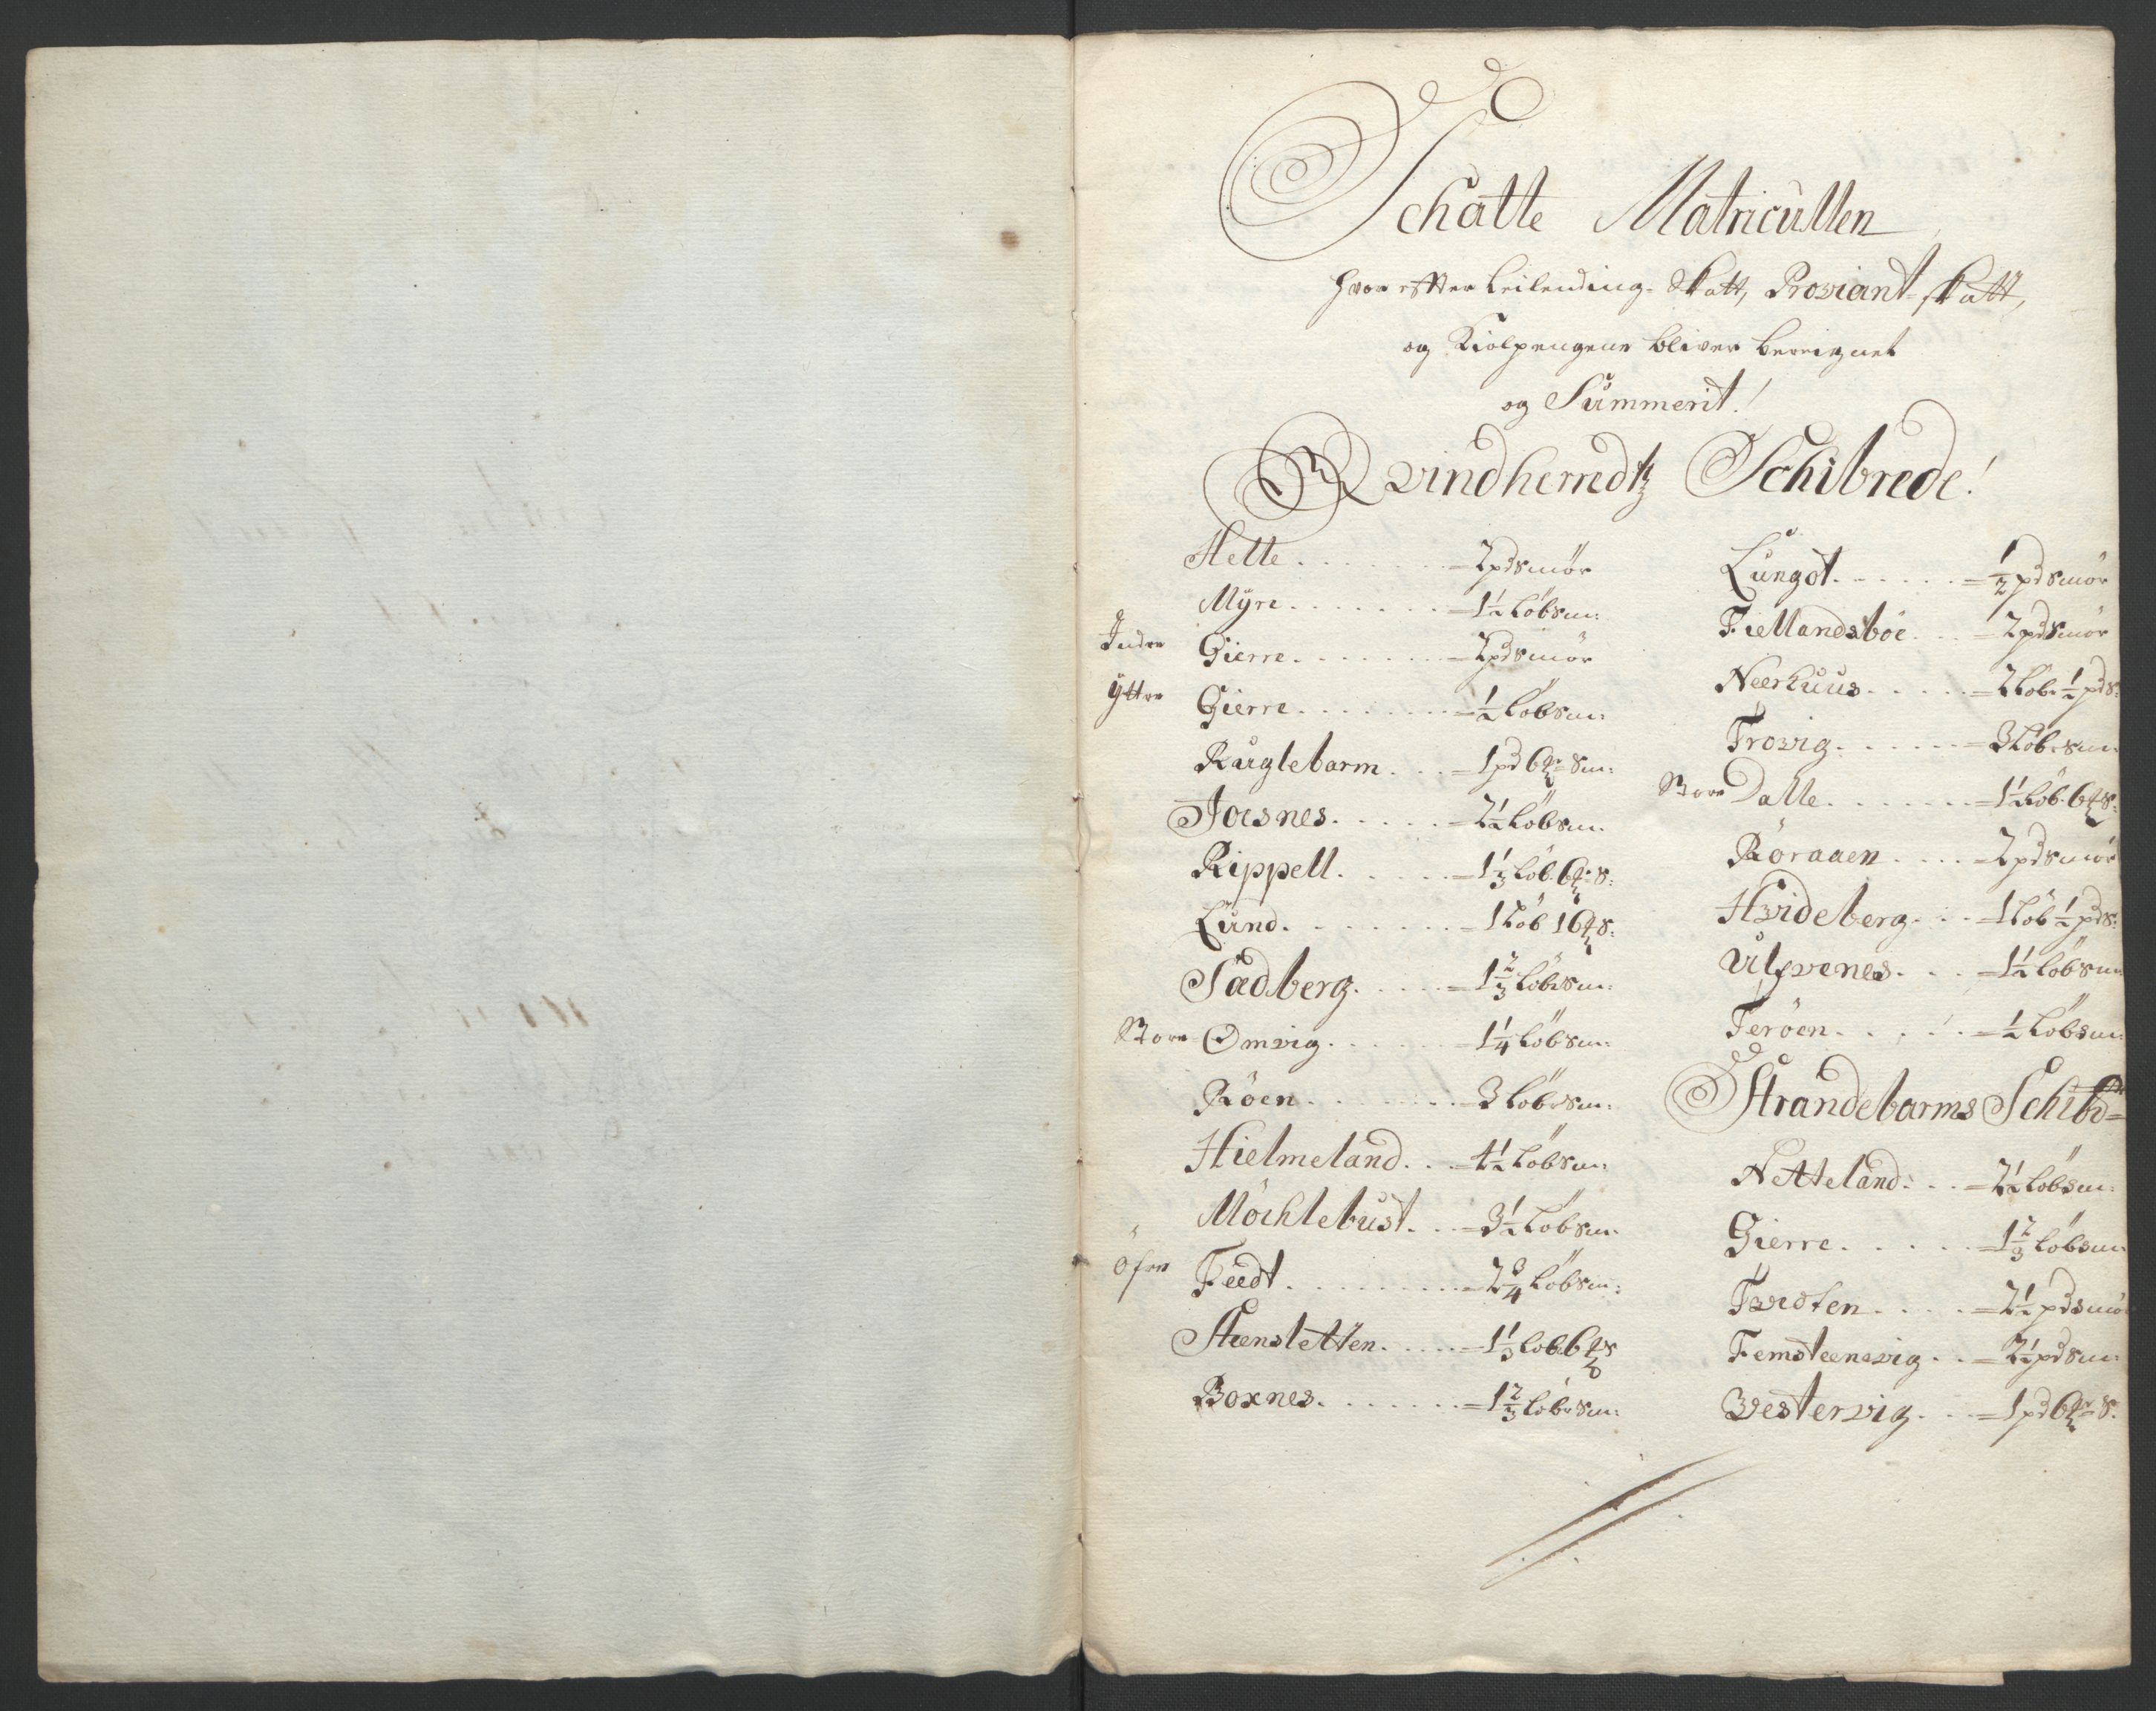 Schatte Matricullen
hvor effter Leilending-Skatt, Proviant-skatt,
og Kiolpengene bliver bereignet
og Summerit!
Qvindherredtz Schibrede!
Hette . . . . . . = 2 pd smör
Myre . . . . . . = 1½ Löbsm:
Indre Gierre . . . . . . = 2 pd smör
Yttre Gierre . . . . . . = ½ Löbsm:
Ruglebarm . . . = 1 pd 6 ℔ sm:
Joesnes . . . . . = 2½ Löbsm:
Rippell . . . . . = 1⅓ Löb 6 ℔ s:
Lund . . . . . . = 1 Löb 16 ℔ s:
Sadberg . . . . . = 1⅔ Löbsm:
Store Omvig . . . . . = 1¼ Löbsm:
Röen . . . . . . = 3 Löbsm:
Hielmeland . . . = 4½ Löbsm:
Möchlebust . . . = 3½ Löbsm:
Öfre Feedt . . . . . . = 2¾ Löbsm:
Steensletten . . . . = 1⅓ Löb 6 ℔ s
Boxnes . . . . . . = 1⅔ Löbsm:
Lungst . . . . . . = ½ pd smör
Fiellandsböe . . . = 2 pd smör
Neerhuus . . . . . = 2 Löb ½ pd s:
Trovig . . . . . . = 3 Löbsm:
Store Dalle . . . . . . = 1½ Löb 6 ℔ s:
Röraaen . . . . = 2 pd smör
Hvideberg . . . = 1 Löb ½ pd s:
Ulfvenes . . . = 1½ Löbsm:
Teröen . . . . . = ½ Löbsm:
Strandebarms Schibr=
Netteland . . . = 2½ Löbsm:
Gierre . . . . . = 1⅔ Löbsm:
Tvedten . . . . = 2½ pd smör
Femsteenevig . . = 2½ pd sm:
Vestervig . . . = 1 pd 6 ℔ s: